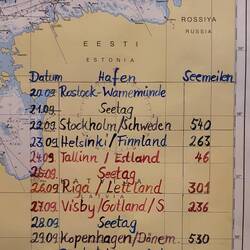 ROSSIYA
RUSSIA
EESTI
ESTONIA
Datum Hafen Seemeilen
20.09 Rostock-Warnemünde
21.09. Seetag
22.09 Stockholm/Schweden 540
23.09 Helsinki/Finnland 263
24.09 Tallinn / Estland 46
25.09 Seetag
26.09 Riga / Lettland 301
LATVIA
27.09 Visby/Gotland/S 236
28.09 Seetag
29.09 Kopenhagen/Dänem 530